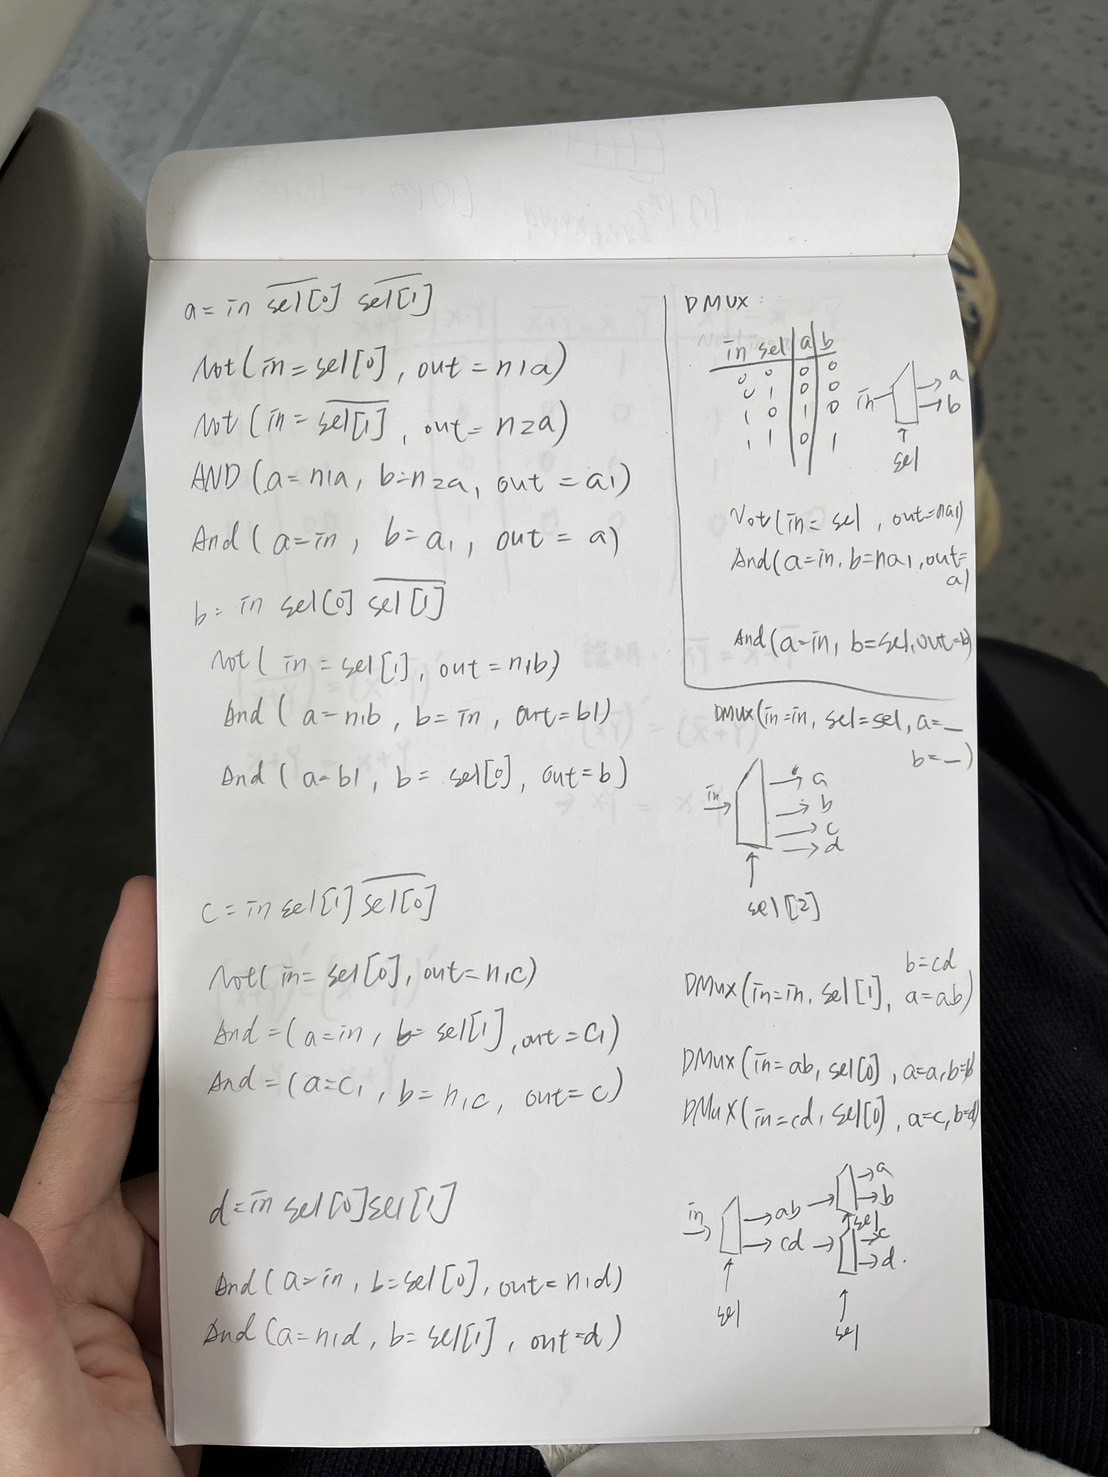 a = in s̅e̅l̅[̅0̅]̅ s̅e̅l̅[̅1̅]̅
Not(in = sel[0], out = n1a)
Not (in = s̅e̅l̅[̅1̅]̅, out = n2a)
AND (a = n1a, b = n2a, out = a1)
And ( a = in , b = a1 , out = a)
b = in sel[0] s̅e̅l̅[̅1̅]̅
Not ( in = sel[1], out = n1b)
And ( a = n1b , b = in, out = b1)
And ( a = b1 , b = sel[0], out = b)
c = in sel[1] s̅e̅l̅[̅0̅]̅
Not( in = sel[0], out = n1c)
And = (a = in , b = sel[1], out = c1)
And = (a = c1 , b = n1c, out = c)
d = in sel[0]sel[1]
And ( a = in , b = sel[0], out = n1d)
And (a = n1d , b = sel[1] , out = d)
DMUX :
in sel a b
0 0 0 0
0 1 0 0
1 0 1 0
1 1 0 1
in
a
b
sel
Not(in = sel , out = na1)
And(a = in, b = na1, out =
a)
And(a = in, b = sel, out = b)
DMUX(in = in, sel = sel, a = _
b = _)
in
a
b
c
d
sel[2]
b = cd
DMux(in = in, sel[1], a = ab)
DMux(in = ab, sel[0], a = a, b = b)
DMux(in = cd, sel[0], a = c, b = d)
in
ab
cd
a
b
sel
c
d.
sel
sel